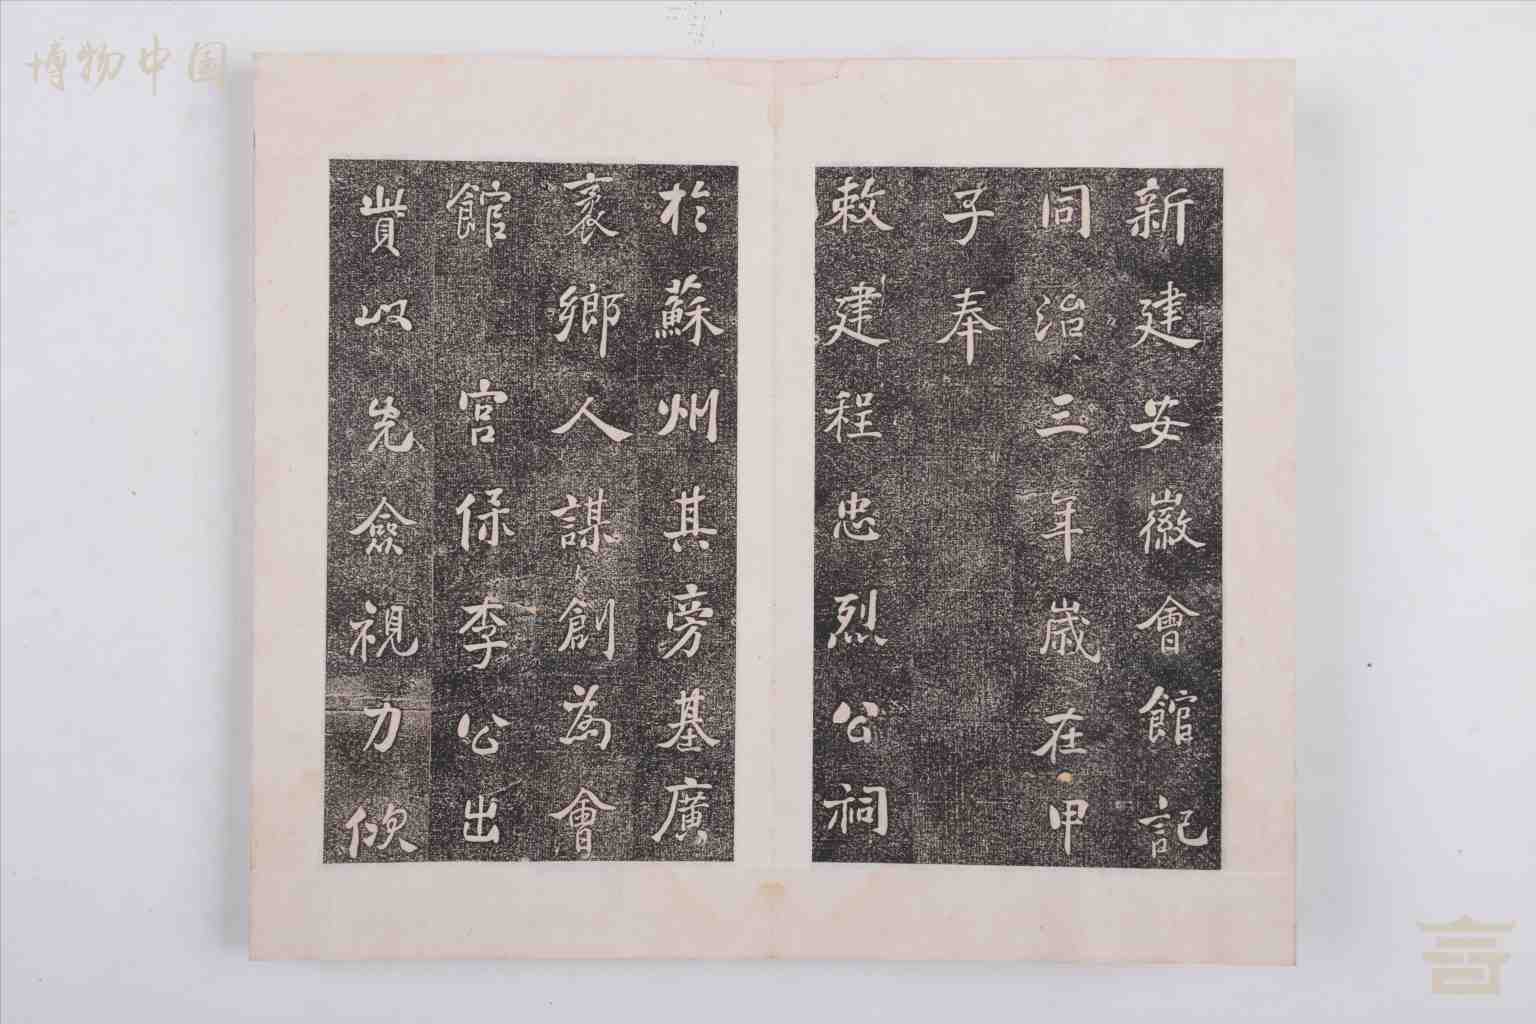 新建安徽會館記
同治三年歲在甲
子奉
敕建程忠烈公祠
於蘇州其旁基廣
袤鄉人謀創為會
館 宮保李公出
貲以先僉視力佽
博物中国